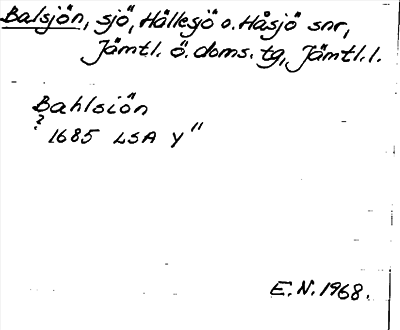 Balsjön, sjö, Hällesjö o. Håsjö snr,
Jämtl. ö. doms. tg, Jämtl. l.
Bahlsiön
? 1685 LSA Y"
E.N. 1968.